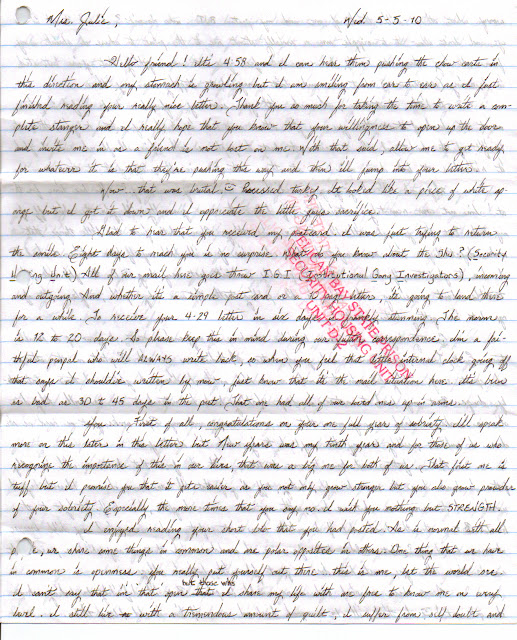 Mrs. Julie, Wed 5-5-10
Hello friend! It's 4:58 and I can hear them pushing the chow carts in
this direction and my stomach is growling but I am smiling from ear to ear as I just
finished reading your really nice letter. Thank you so much for taking the time to write a com-
plete stranger and I really hope that you know that your willingness to open up the door
and invite me in as a friend is not lost on me. With that said, allow me to get ready
for whatever it is that they're pushing this way and then I'll jump into your letter.
Now that was brutal. Processed turkey. It looked like a piece of white sp-
onge but I got it down and I appreciate the little guy's sacrifice.
Glad to hear that you received my postcard. I was just trying to return
the smile. Eight days to reach you is no surprise. What do you know about the Shu? (Security
Housing Unit) All of our mail here goes through I.G.I (Institutional Gang Investigators), incoming
and outgoing. And whether it's a simple post card or a 10 page letter, it's going to land there
for a while. To receive your 4-29 letter in six days is frankly stunning. The norm
is 12 to 20 days. So please keep this in mind during our correspondence. I'm a fai-
thful penpal who will ALWAYS write back, so when you feel that little internal clock going off
that says I should've written by now, just know that it's the mail situation here. It's been
as bad as 30 to 45 days in the past. That one had all of our loved ones up in arms.
You... First of all, congratulations on your one full year of sobriety. I'll speak
more on this later in this letter but New Years was my tenth year and for those of us who
recognize the importance of this in our lives, that was a big one for both of us. That first one is
tuff but I promise you that it gets easier as you not only grow stronger but you also grow prouder
of your sobriety. Especially the more times that you say no. I wish you nothing but STRENGTH.
I enjoyed reading your short bio that you had posted. As is normal with all
people, we share some things in common and are polar opposites in others. One thing that we have
in common is openness. You really put yourself out there. This to me, let the world see.
I can't say that I'm that open but those who that I share my life with are free to know me on every
level. I still live with a tremendous amount of guilt, I suffer from self doubt and
PELICAN BAY STATE PRISON
SECURITY HOUSING UNIT
UNIT D2